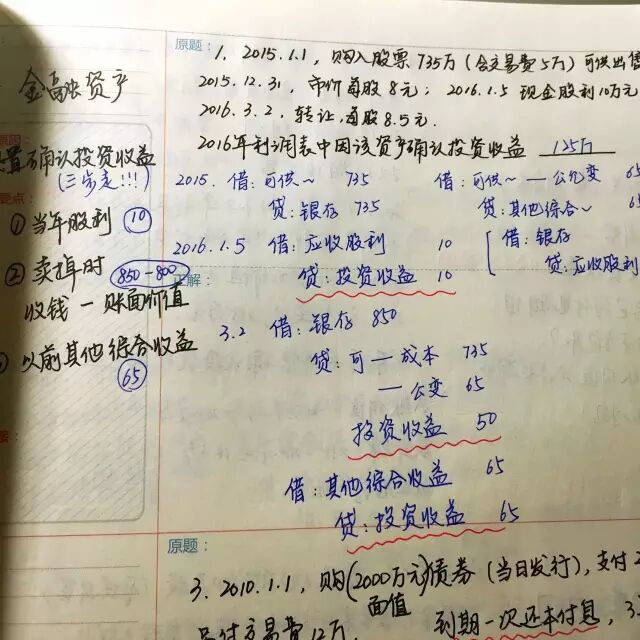 原题：
1. 2015.1.1，购入股票 735万（含交易费5万）可供出售
2015.12.31，市价每股8元；2016.1.5 现金股利10万元
2016.3.2，转让，每股8.5元.
2016年利润表中因该资产确认投资收益 125万
金融资产
确认投资收益
（三步走!!!）
要点：
① 当年股利 10
② 卖掉时 850-800
收钱 — 账面价值
以前其他综合收益
65
2015. 借：可供～ 735
贷：银存 735
借：可供～ — 公允变 65
贷：其他综合～
2016.1.5 借：应收股利 10
贷：投资收益 10
借：银存
贷：应收股利
正解：
3.2 借：银存 850
贷：可 — 成本 735
— 公变 65
投资收益 50
借：其他综合收益 65
贷：投资收益 65
原题：
3. 2010.1.1，购(2000万元)债券（当日发行），支付
面值
另付交易费12万.
到期一次还本付息，3.